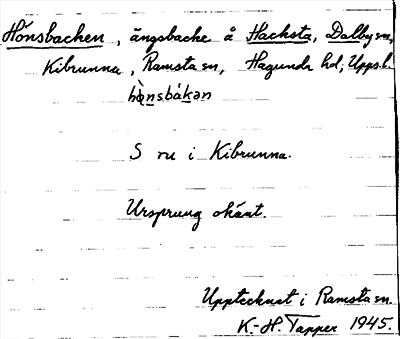 Hönsbacken, ängsbacke å Hacksta, Dalby sn,
Kibrunna, Ramsta sn, Hagunda hd, Upps. l.
S ru i Kibrunna.
Ursprung okänt.
Upptecknat i Ramsta sn.
K-H. Tapper 1945.